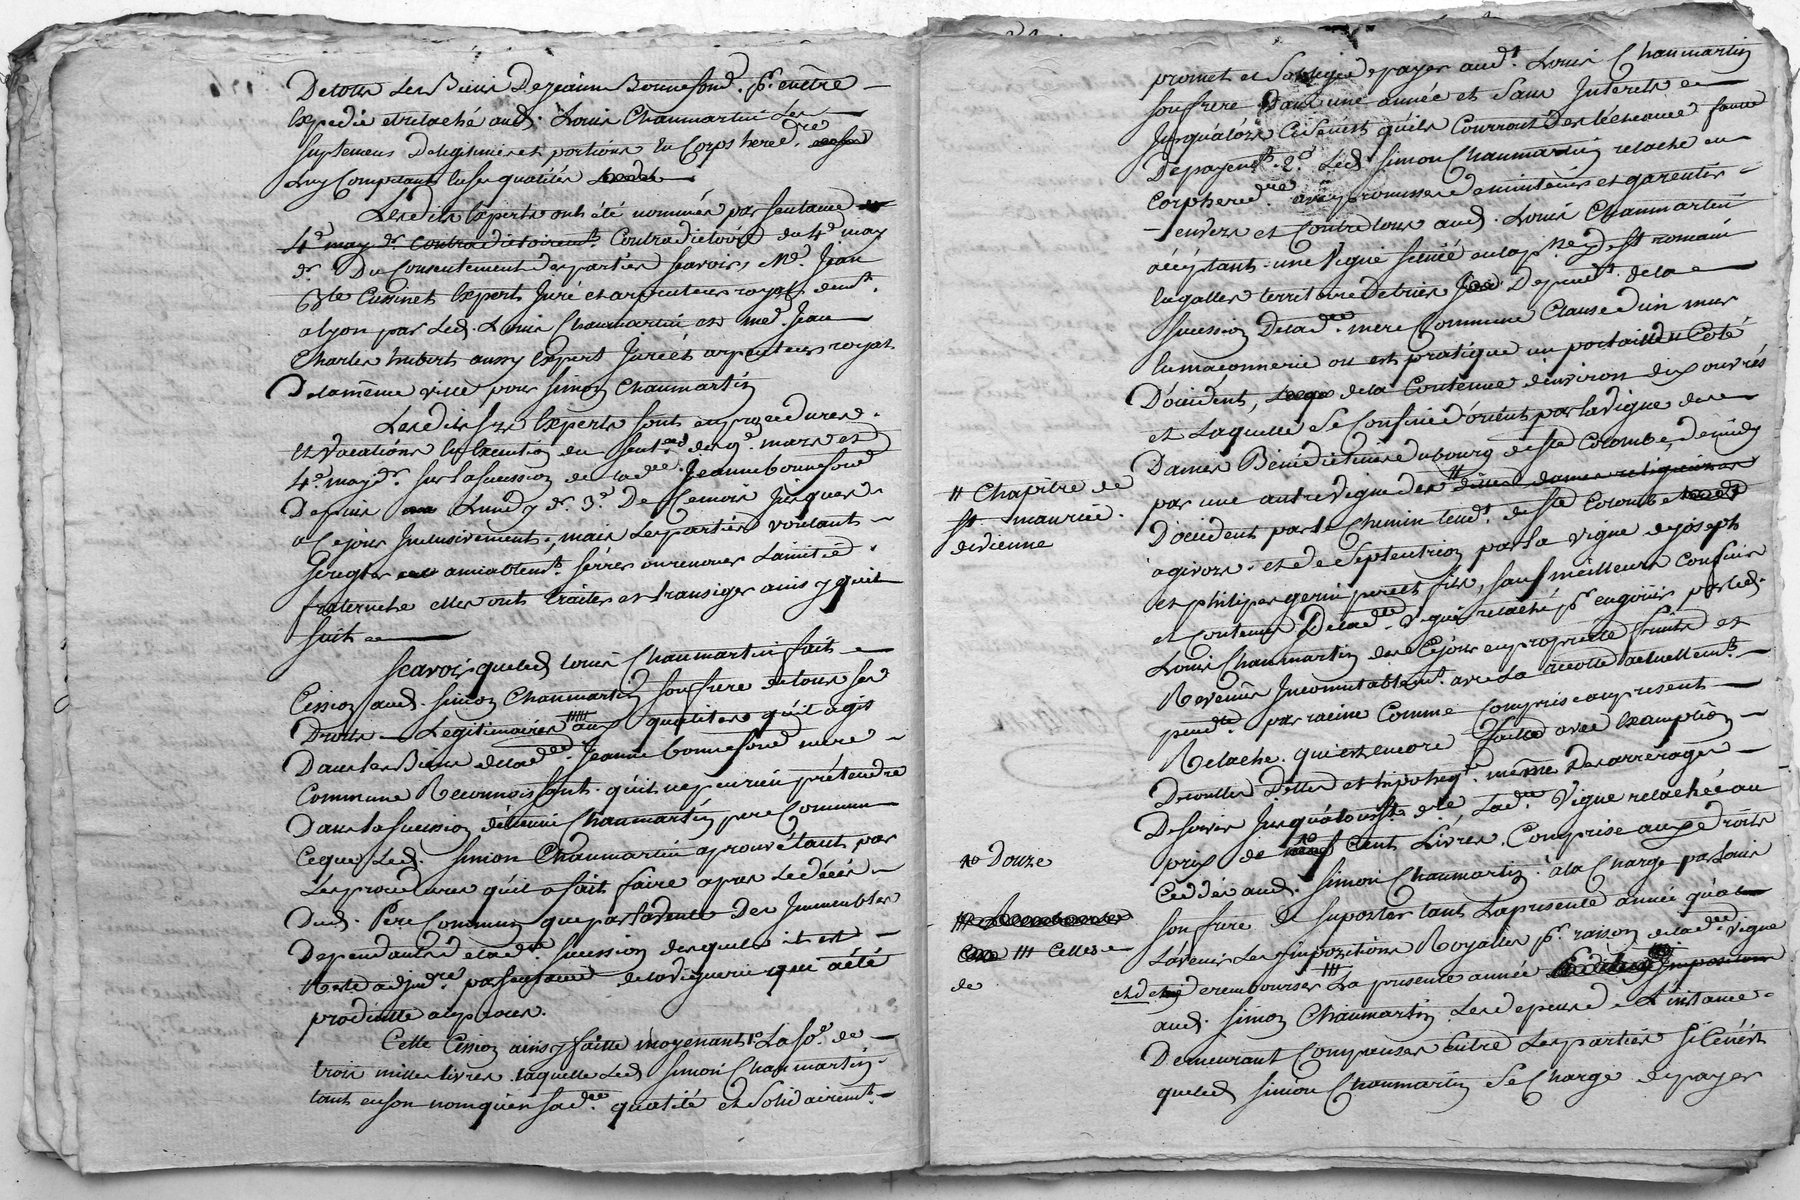 De tous les Biens de jeanne Bonnefond. pr. en être
Expedié et relaché aud. Louis Chaumartin Les
suplemens de legitimes et portions En Corps hered.re
Luy Competants Esd. qualités
Lesdits Experts ont été nommés par sentence
4.e may d.r contradictoirem.t Contradictoire du 4.e may
d.r Du Consentement des parties scavoir, M.e Jean
B.te Cusinet Expert Juré et arpenteur royal dem.t
a lyon par Led. Louis Chaumartin et M.e Jean
Charles hubert aussy Expert Juré et arpenteur royal
De la même ville pour Simon Chaumartin
Lesdits srs Experts sont en procedures
Et vacations En Execution des sent.ces des 9.e mars et
4.e may d.r sur la sucession de lad.e Jeanne bonnefond
Depuis Lundy d.r 3.e De Ce mois Jusques
a Ce jour Inclusivement, mais Les parties voulant
se regler amiablem.t serrer ou renouer L'amitié
fraternelle elles ont traité et transigé ainsy qu'il
suit
scavoir que led. louis Chaumartin fait
Cession aud. Simon Chaumartin son frere de tous ses
Droits Legitimaires aux qualites qu'il agis
Dans les Biens de lad.e Jeanne bonnefond mere
Commune Reconnoissant qu'il ne peu rien prétendre
Dans la sucession d'étienne Chaumartin pere Commun
Ce que Led. Simon Chaumartin a prouvé tant par
Les procedures qu'il a fait faire apres Le décés
Dud. Pere Commun que par la vente Des Immeubles
Dependants de lad.e sucession desquels il est
Resté adjud.re par sentence de la viguerie qui a été
produitte au procès.
Cette Cession ainsy faitte moyenant 1.o La so.e de
trois milles livres laquelle Led. Simon Chaumartin
tant en son nom qu'en sad.e qualité et solidairem.t
promet et s'oblige payer aud.t Louis Chaumartin
son frere Dans une année et sans Interets
Jusqu'alors Ce sensit qu'ils Courront Des l'écheance faute
De payem.t 2.o Led. Simon Chaumartin relache en
Corps hered.re avec promesse de maintenir et garentir
envers et Contre tous aud. Louis Chaumartin
acceptant une Vigne située en la p.sse de st romain
En galles territoire de trier Depend.t de la
sucession De lad.e mere Commune Clause d'un mur
En maconnerie ou est pratiqué un portail du Coté
D'occident, de la Contenue d'environ dix ouvrés
et Laquelle se Confine d'orient par la vigne des
Dames Bénédictines du bourg de ste Colombe, de midy
par une autre vigne des # dittes dames religieuses
D'occident par le chemin tend.t de ste Colombe
a givors et de septentrion par la vigne de joseph
et philipes germain pere et fils, sauf meilleurs Confins
et Contenue De lad.e Vigne relaché pr. en jouir par led.
Louis Chaumartin des Ce jour en proprieté fruits et
Revenus Incomutablem.t avec La recolte actuellem.t
pend.te par racine Comme Comprise au present
Relache qui est encore faitte avec Exemption
De touttes Dettes et hipoteq.e même Des arrerages
De servis Jusqu'a tout st , Lad.e Vigne relachée au
prix de cent Livres Comprise aux droits
Ceddés aud. Simon Chaumartin à la Charge par Louis
son frere de suporter tant La presente année qu'a
L'avenir Les Impozitions Royalles pr. raison de lad.e Vigne
et de rembourser ### La presente année
aud. Simon Chaumartin Les depens de L'instance
Demeurant Compensés Entre Les parties si Ce n'est
que led. Simon Chaumartin se Charge de payer
# Chapitre de
st maurice
de vienne
Douze
### Celles
de